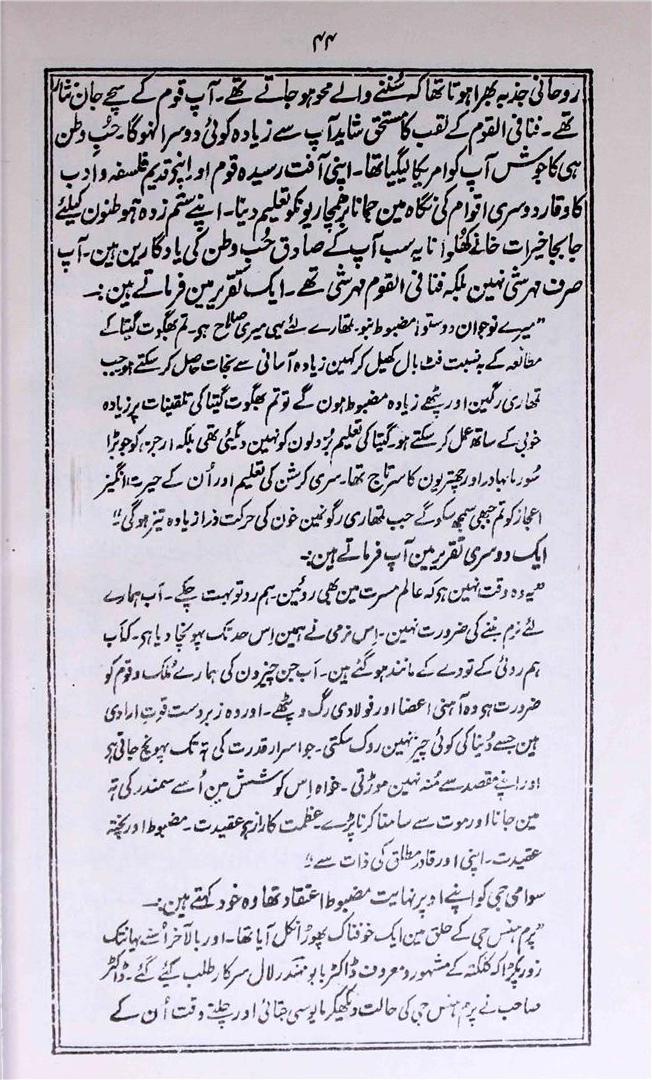 ۴۴
روحانی جذبہ بھرا ہوتا تھا کہ سُننے والے محو ہو جاتے تھے۔ آپ قوم کے سچے جان نثار
تھے۔ فنافی القوم کے لقب کا مستحق شاید آپ سے زیادہ کوئی دوسرا نہوگا۔ حُبِّ وطن
ہی کا جوش آپ کو امریکا لیگیا تھا۔ اپنی آفت رسیدہ قوم اور اپنے قدیم فلسفہ و ادب
کا وقار دوسری اقوام کی نگاہ مین جمانا برھمچاریونکو تعلیم دینا۔ اپنے ستم زدہ ہموطنون کیلئے
جابجا خیرات خانے کھُلوانا یہ سب آپ کے صادق حُب وطن کی یادگارین ہین۔ آپ
صرف مہرشی نہین بلکہ فنافی القوم مہرشی تھے۔ ایک تقریر مین فرماتے ہین:۔
”میرے نوجوان دوستو! مضبوط بنو۔ تمھارے لئے یہی میری صلاح ہی۔ تم بھگوت گیتا کے
مطالعہ کے بہ نسبت فٹ بال کھیل کر کہین زیادہ آسانی سے نجات حاصل کر سکتے ہو جب
تمھاری رگین اور پٹھے زیادہ مضبوط ہون گے تو تم بھگوت گیتا کی تلقینات پر زیادہ
خوبی کے ساتھ عمل کر سکتے ہو۔ گیتا کی تعلیم بُزدلون کو نہین دیگئی تھی بلکہ ارجن کو جو بڑا
سُورما بہادر اور چھتریون کا سرتاج تھا۔ سری کرشن کی تعلیم اور اُن کے حیرت انگیز
اعجاز کو تم جبھی سمجھ سکو گے جب تمھاری رگونمین خون کی حرکت ذرا زیادہ تیز ہوگی“
ایک دوسری تقریر مین آپ فرماتے ہین:۔
”یہ وہ وقت نہین ہو کہ عالم مسرت مین بھی روئین۔ ہم رو تو بہت چکے۔ اب ہمارے
لئے نرم بننے کی ضرورت نہین۔ اِس نرمی نے ہمین اس حد تک پہونچا دیا ہو۔ کہ اَب
ہم روئی کے تودے کے مانند ہو گئے ہین۔ اَب جن چیزون کی ہمارے مُلک و قوم کو
ضرورت ہو وہ آہنی اعضا اور فولادی رگ و پٹھے۔ اور وہ زبردست قوتِ ارادی
ہین جسے دُنیا کی کوئی چیز نہین روک سکتی۔ جو اسرار قدرت کی تہ تک پہونچ جاتی ہو
اور اپنے مقصد سے مُنہ نہین موڑتی۔ خواہ اِس کوشش مین اُسے سمندر کی تہ
مین جانا اور موت سے سامنا کرنا پڑے۔ عظمت کا راز ہے عقیدت۔ مضبوط اور پختہ
عقیدت۔ اپنی اور قادر مطلق کی ذات سے“
سوامی جی کو اپنے اوپر نہایت مضبوط اعتقاد تھا وہ خود کہتے ہین:۔
”پرم ہنس جی کے حلق مین ایک خوفناک پھوڑا نکل آیا تھا۔ اور بالآخر اُسنے یہانتک
زور پکڑا کہ کلکتہ کے مشہور و معروف ڈاکٹر بابو مہندر لال سرکار طلب کیے گئے۔ ڈاکٹر
صاحب نے پرم ہنس جی کی حالت دیکھکر مایوسی جتائی اور چلتے وقت اُن کے